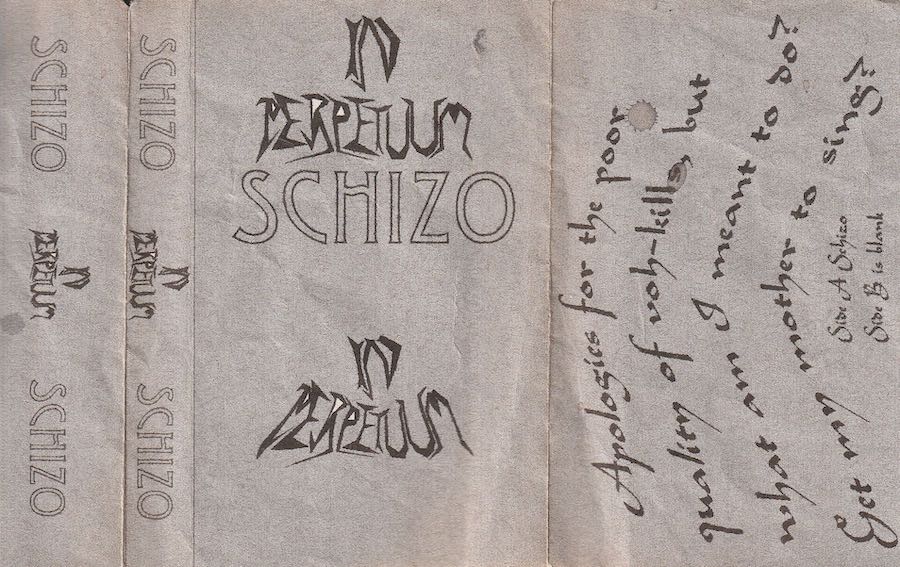 SCHIZO
IN
PERPETUUM
SCHIZO
SCHIZO
IN
PERPETUUM
SCHIZO
IN
PERPETUUM
SCHIZO
IN
PERPETUUM
Apologies for the poor
quality of voh-kills, but
what am I meant to do?
Get my mother to sing?
Side A Schizo
Side B is blank